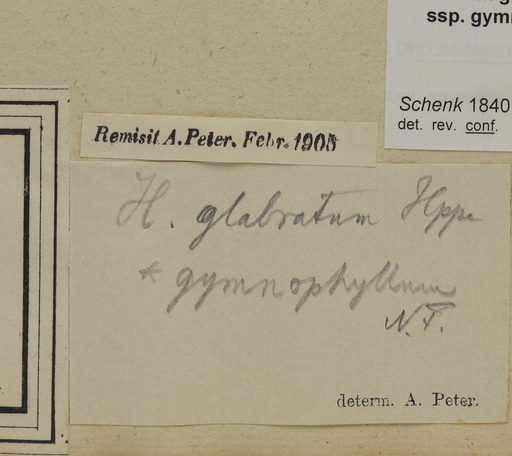 ssp. gym
Schenk 1840
det. rev. conf.
Remisit A. Peter. Febr. 1905
H. glabratum Hppe
* gymnophyllum
N. T.
determ. A. Peter.